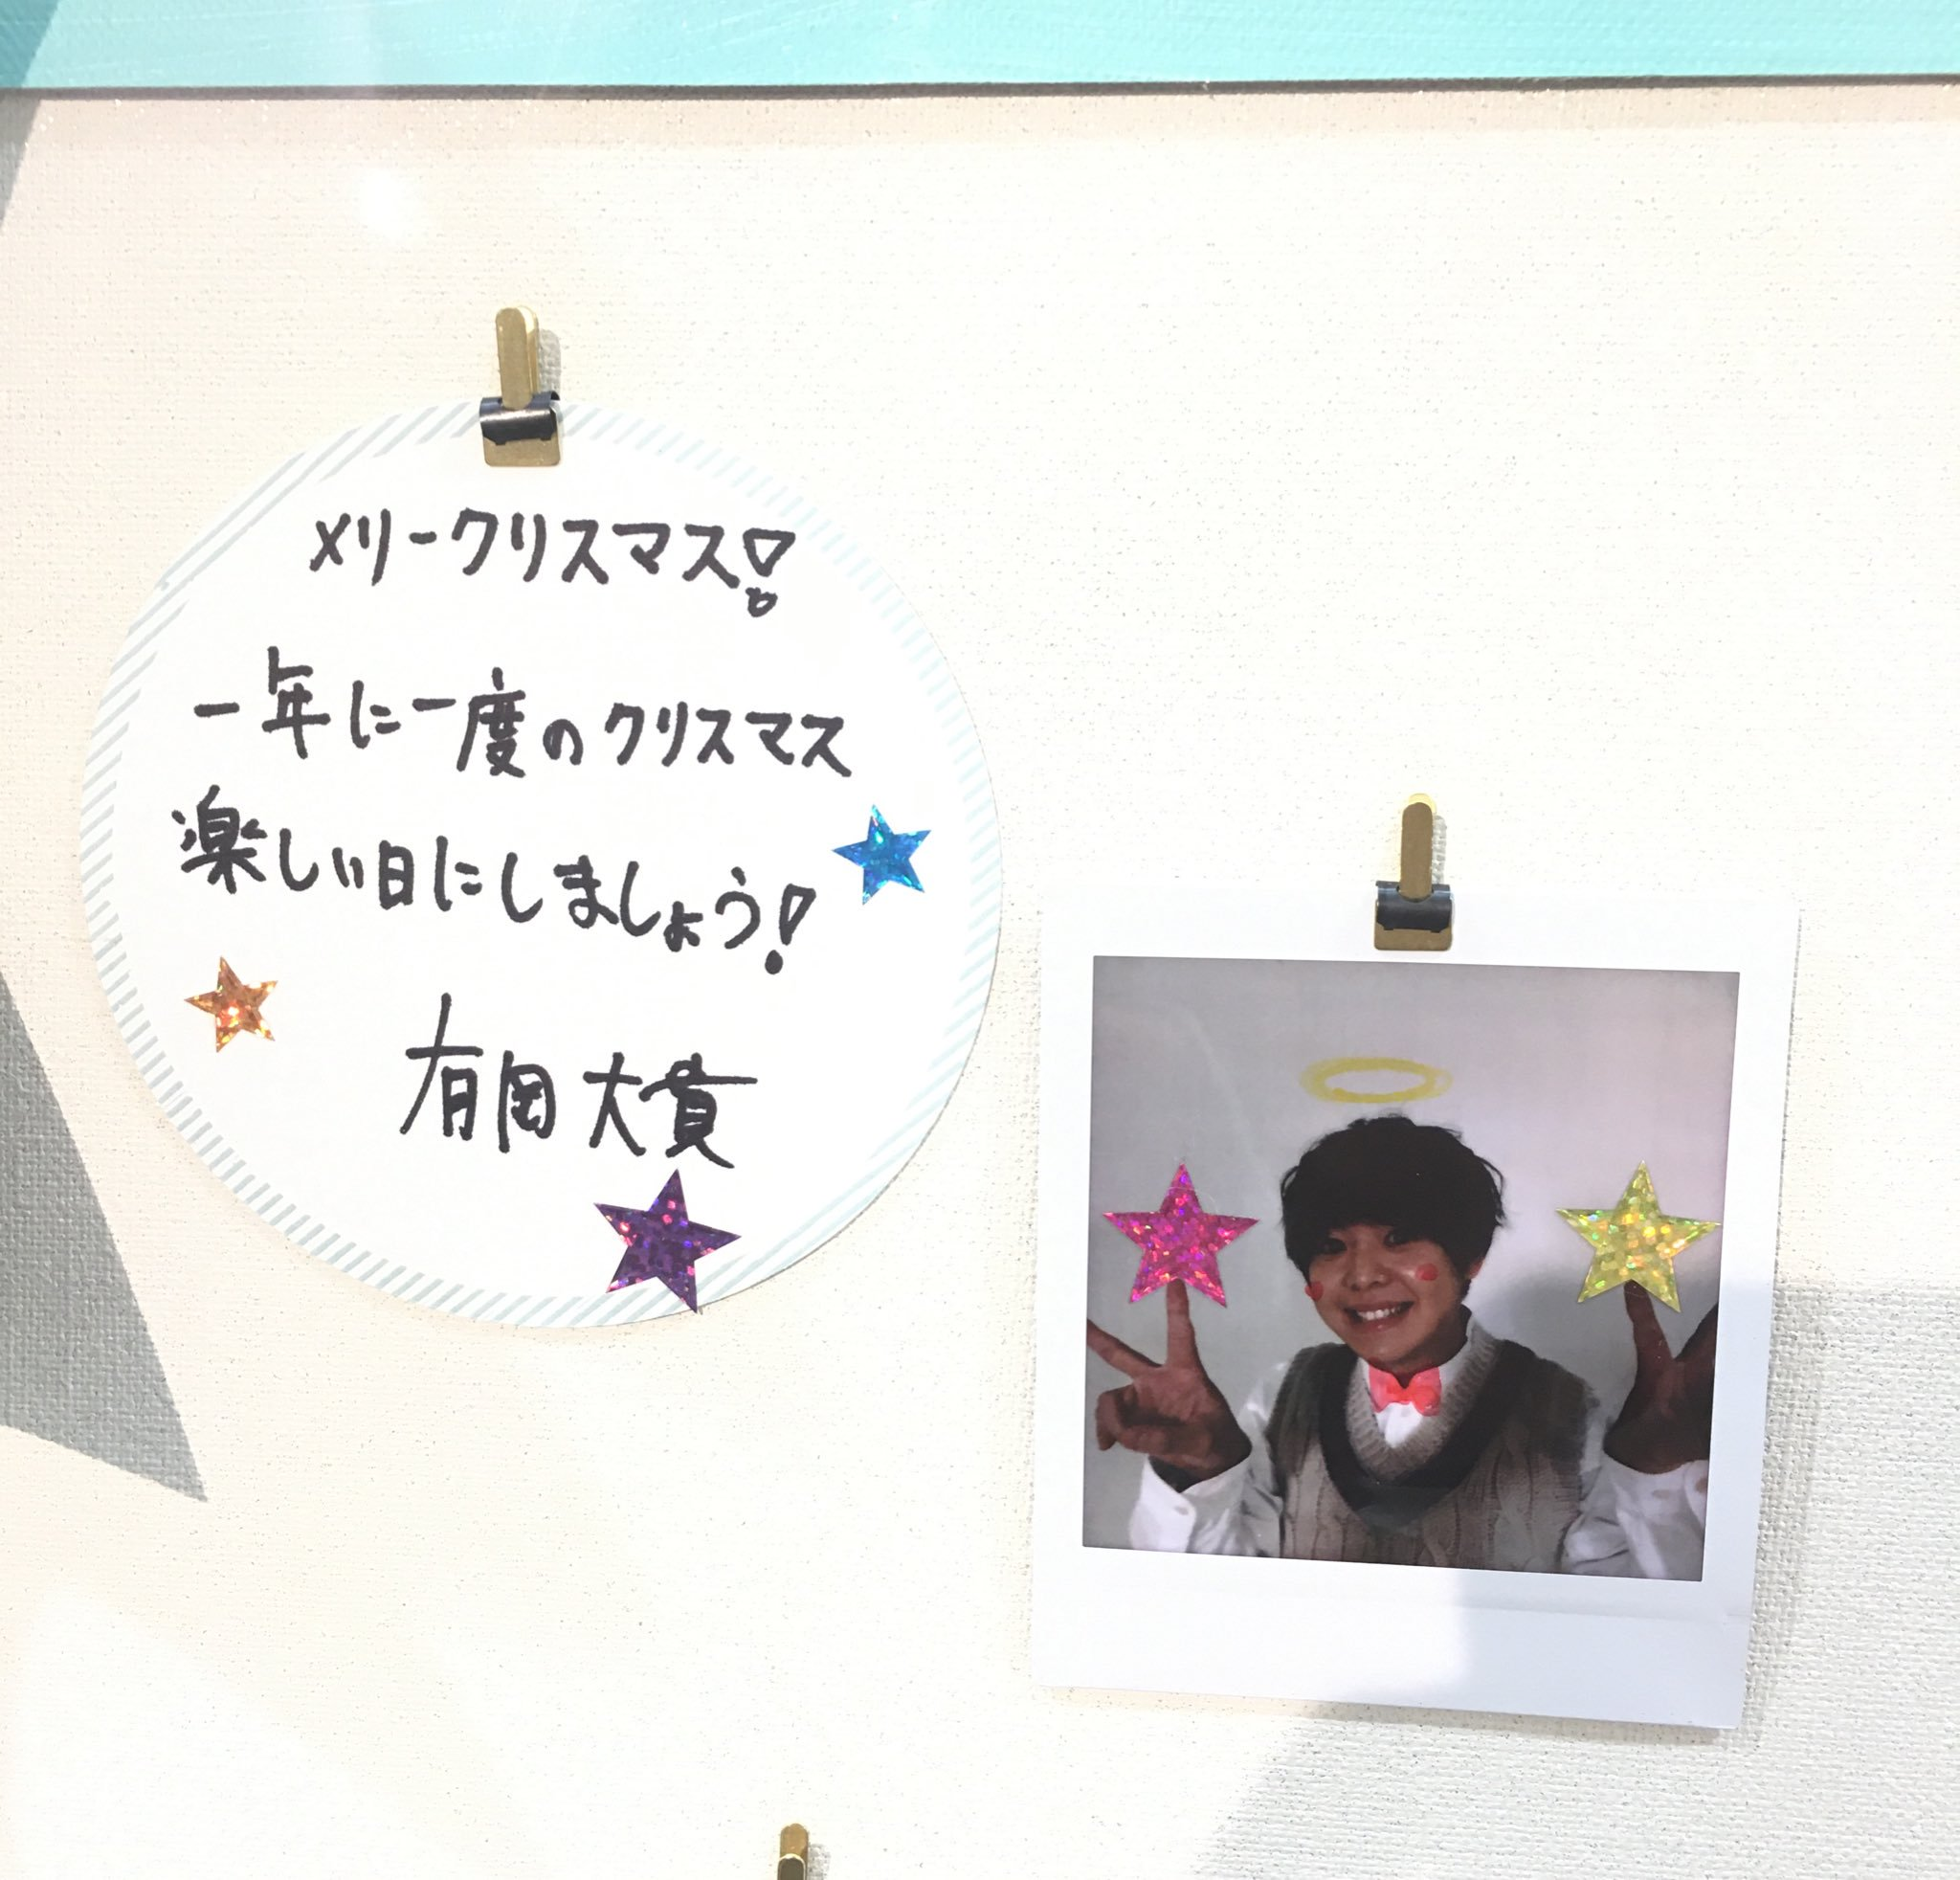 メリークリスマス!
一年に一度のクリスマス
楽しい日にしましょう!
有岡大貴